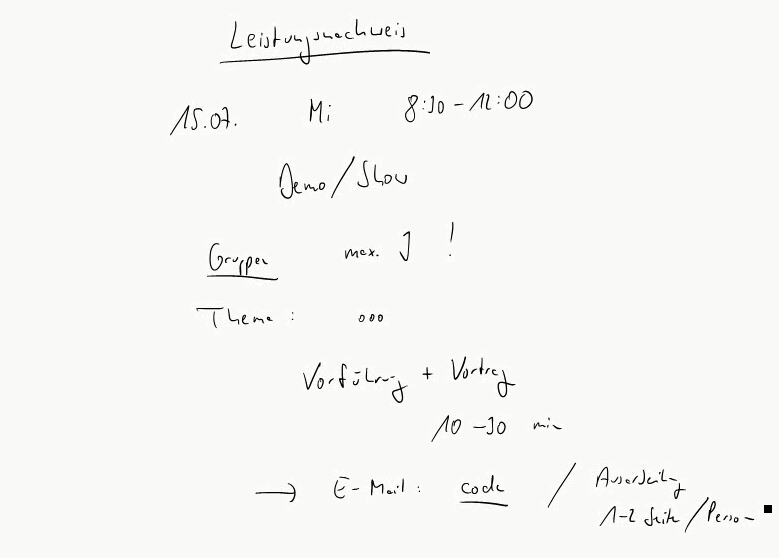 Leistungsnachweis
15.07. Mi 8:30 - 12:00
Demo / Show
Gruppen max. 3 !
Thema : ooo
Vorführung + Vortrag
10 - 30 min
→ E-Mail : code / Ausarbeitung
1-2 Seite / Person